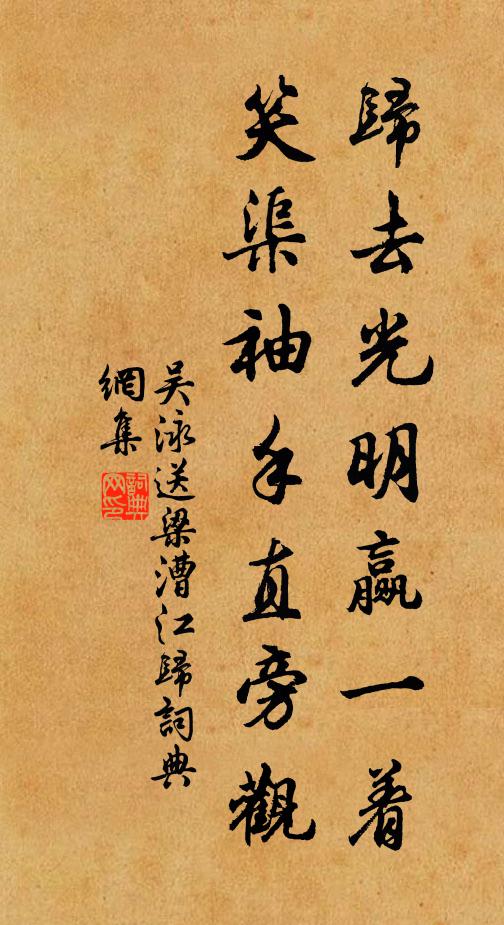 歸去光明贏一着
笑渠袖手直旁觀
吳泳送梁漕江歸詞典
網集
詞典
网印